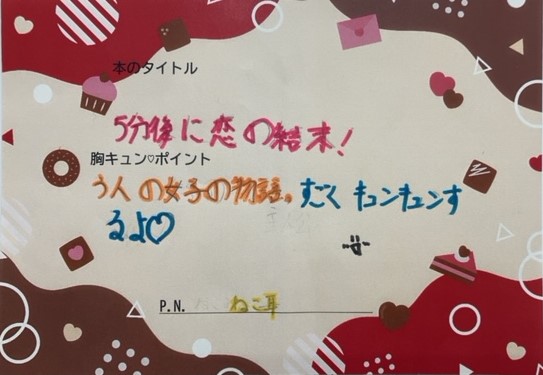 本のタイトル
5分後に恋の結末!
胸キュン♡ポイント
う人の女子の物語。すごくキュンキュンす
るよ♡
P.N. ねこ耳